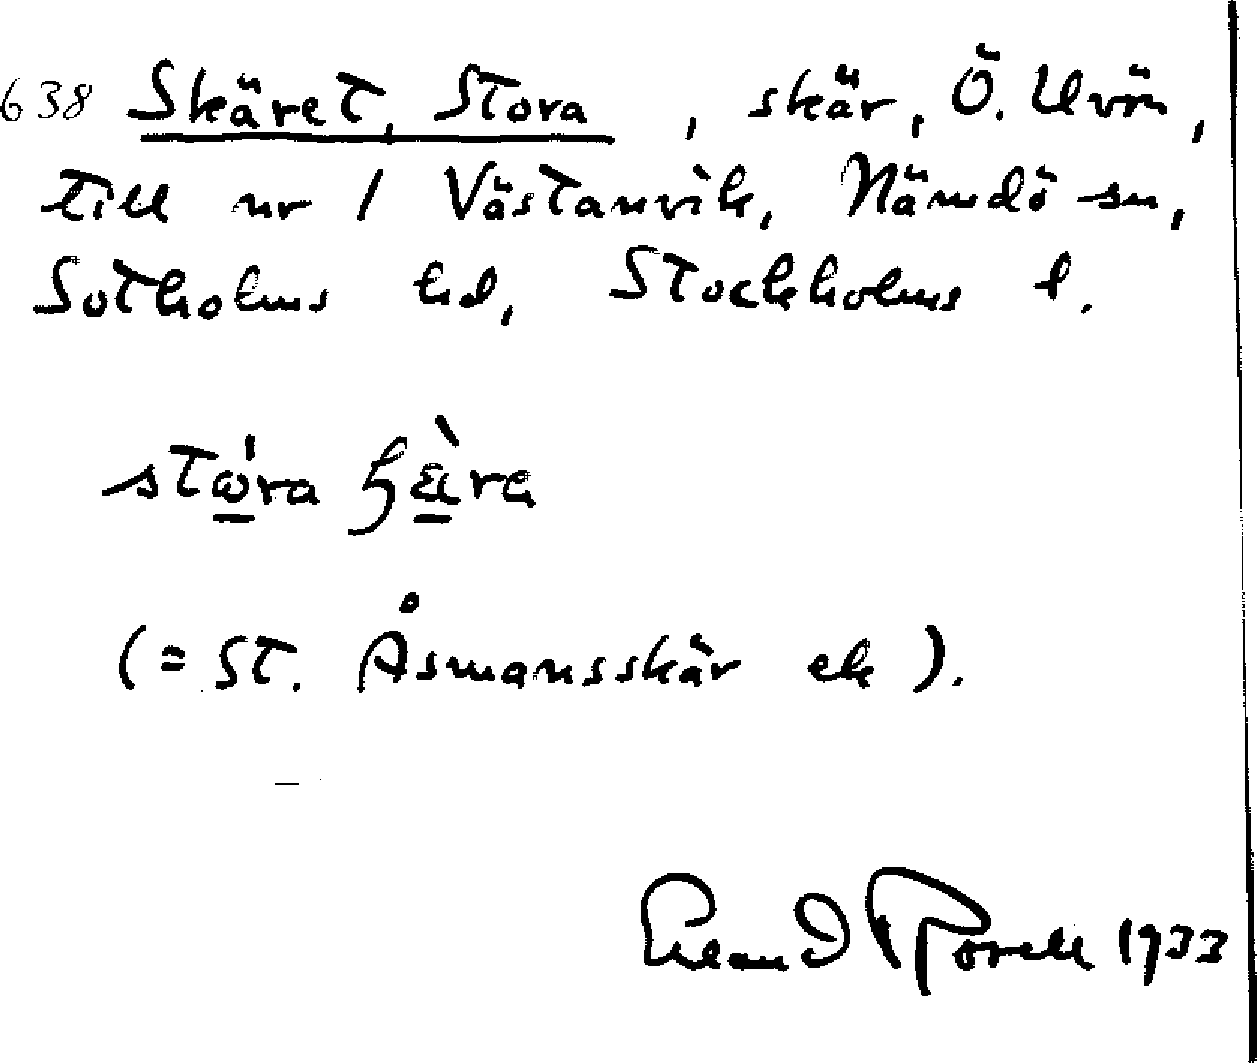 638 Skäret, Stora, skär, Ö. Uvön,
till nr 1 Västanvik, Nämdö sn,
Sotholms hd, Stockholms l.
(= St. Åsmansskär ek).
1933